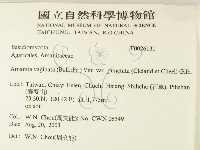 國立自然科學博物館
NATIONAL MUSEUM OF NATURAL SCIENCE
TAICHUNG, TAIWAN, R.O.CHINA
basidiomycota F0026131
Agaricales, Amanitaceae
Amanita vaginata (Bull.:Fr.) Vitt. var. punctata (Cleland et Cheel) Gilb.
Loc: Taiwan, Chiayi Hsien, Shihcho
23.30.N, 120.42.E,
on soil
Col: W.N. Chou(周文能) No. CWN 06349
Date: Aug. 20, 2003
Det: W.N. Chou(周文能)